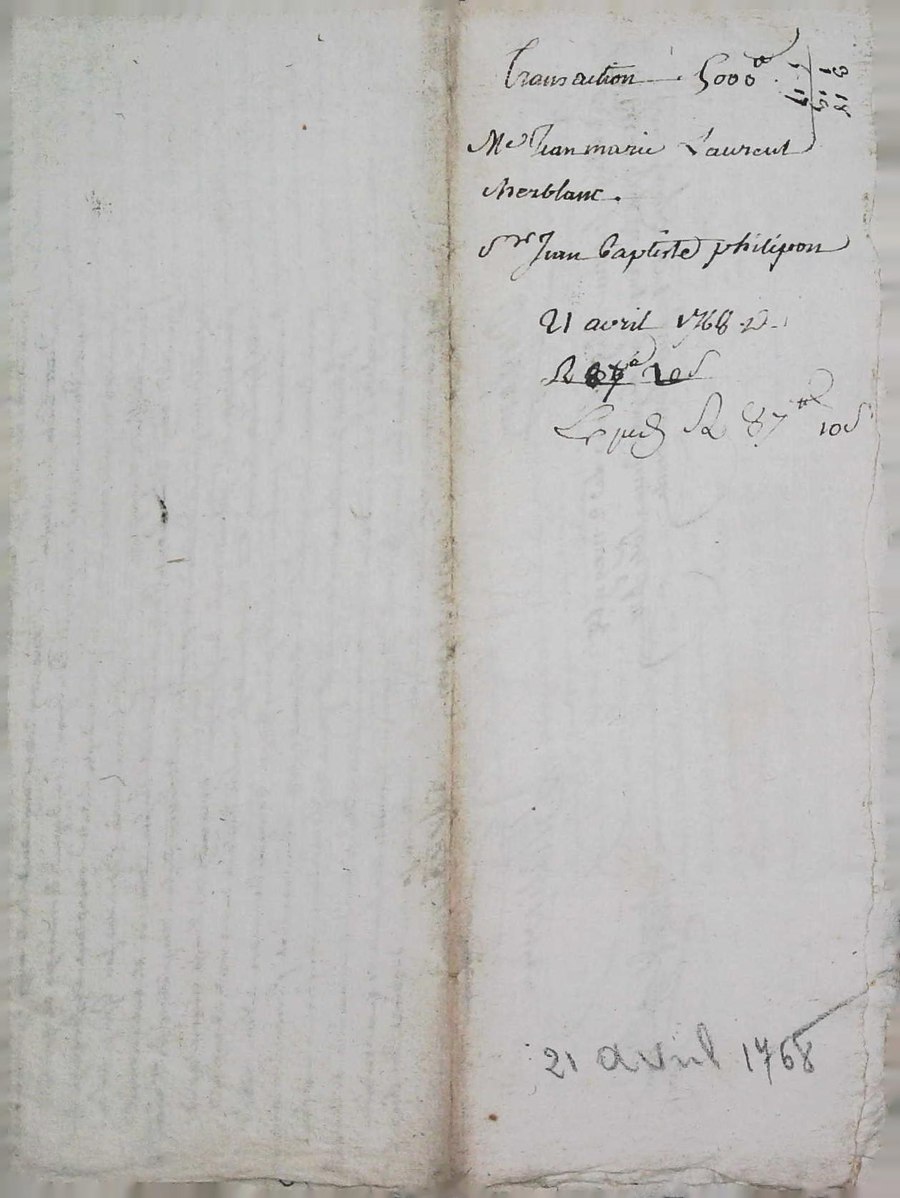 Transaction 5000 ᵗᵗ
Me Jean marie Laurent
Merblanc.
Sr Jean Baptiste philipon
21 avril 1768
R 87 ᵗᵗ 10 s
R 87 ᵗᵗ 10 s
21 avril 1768